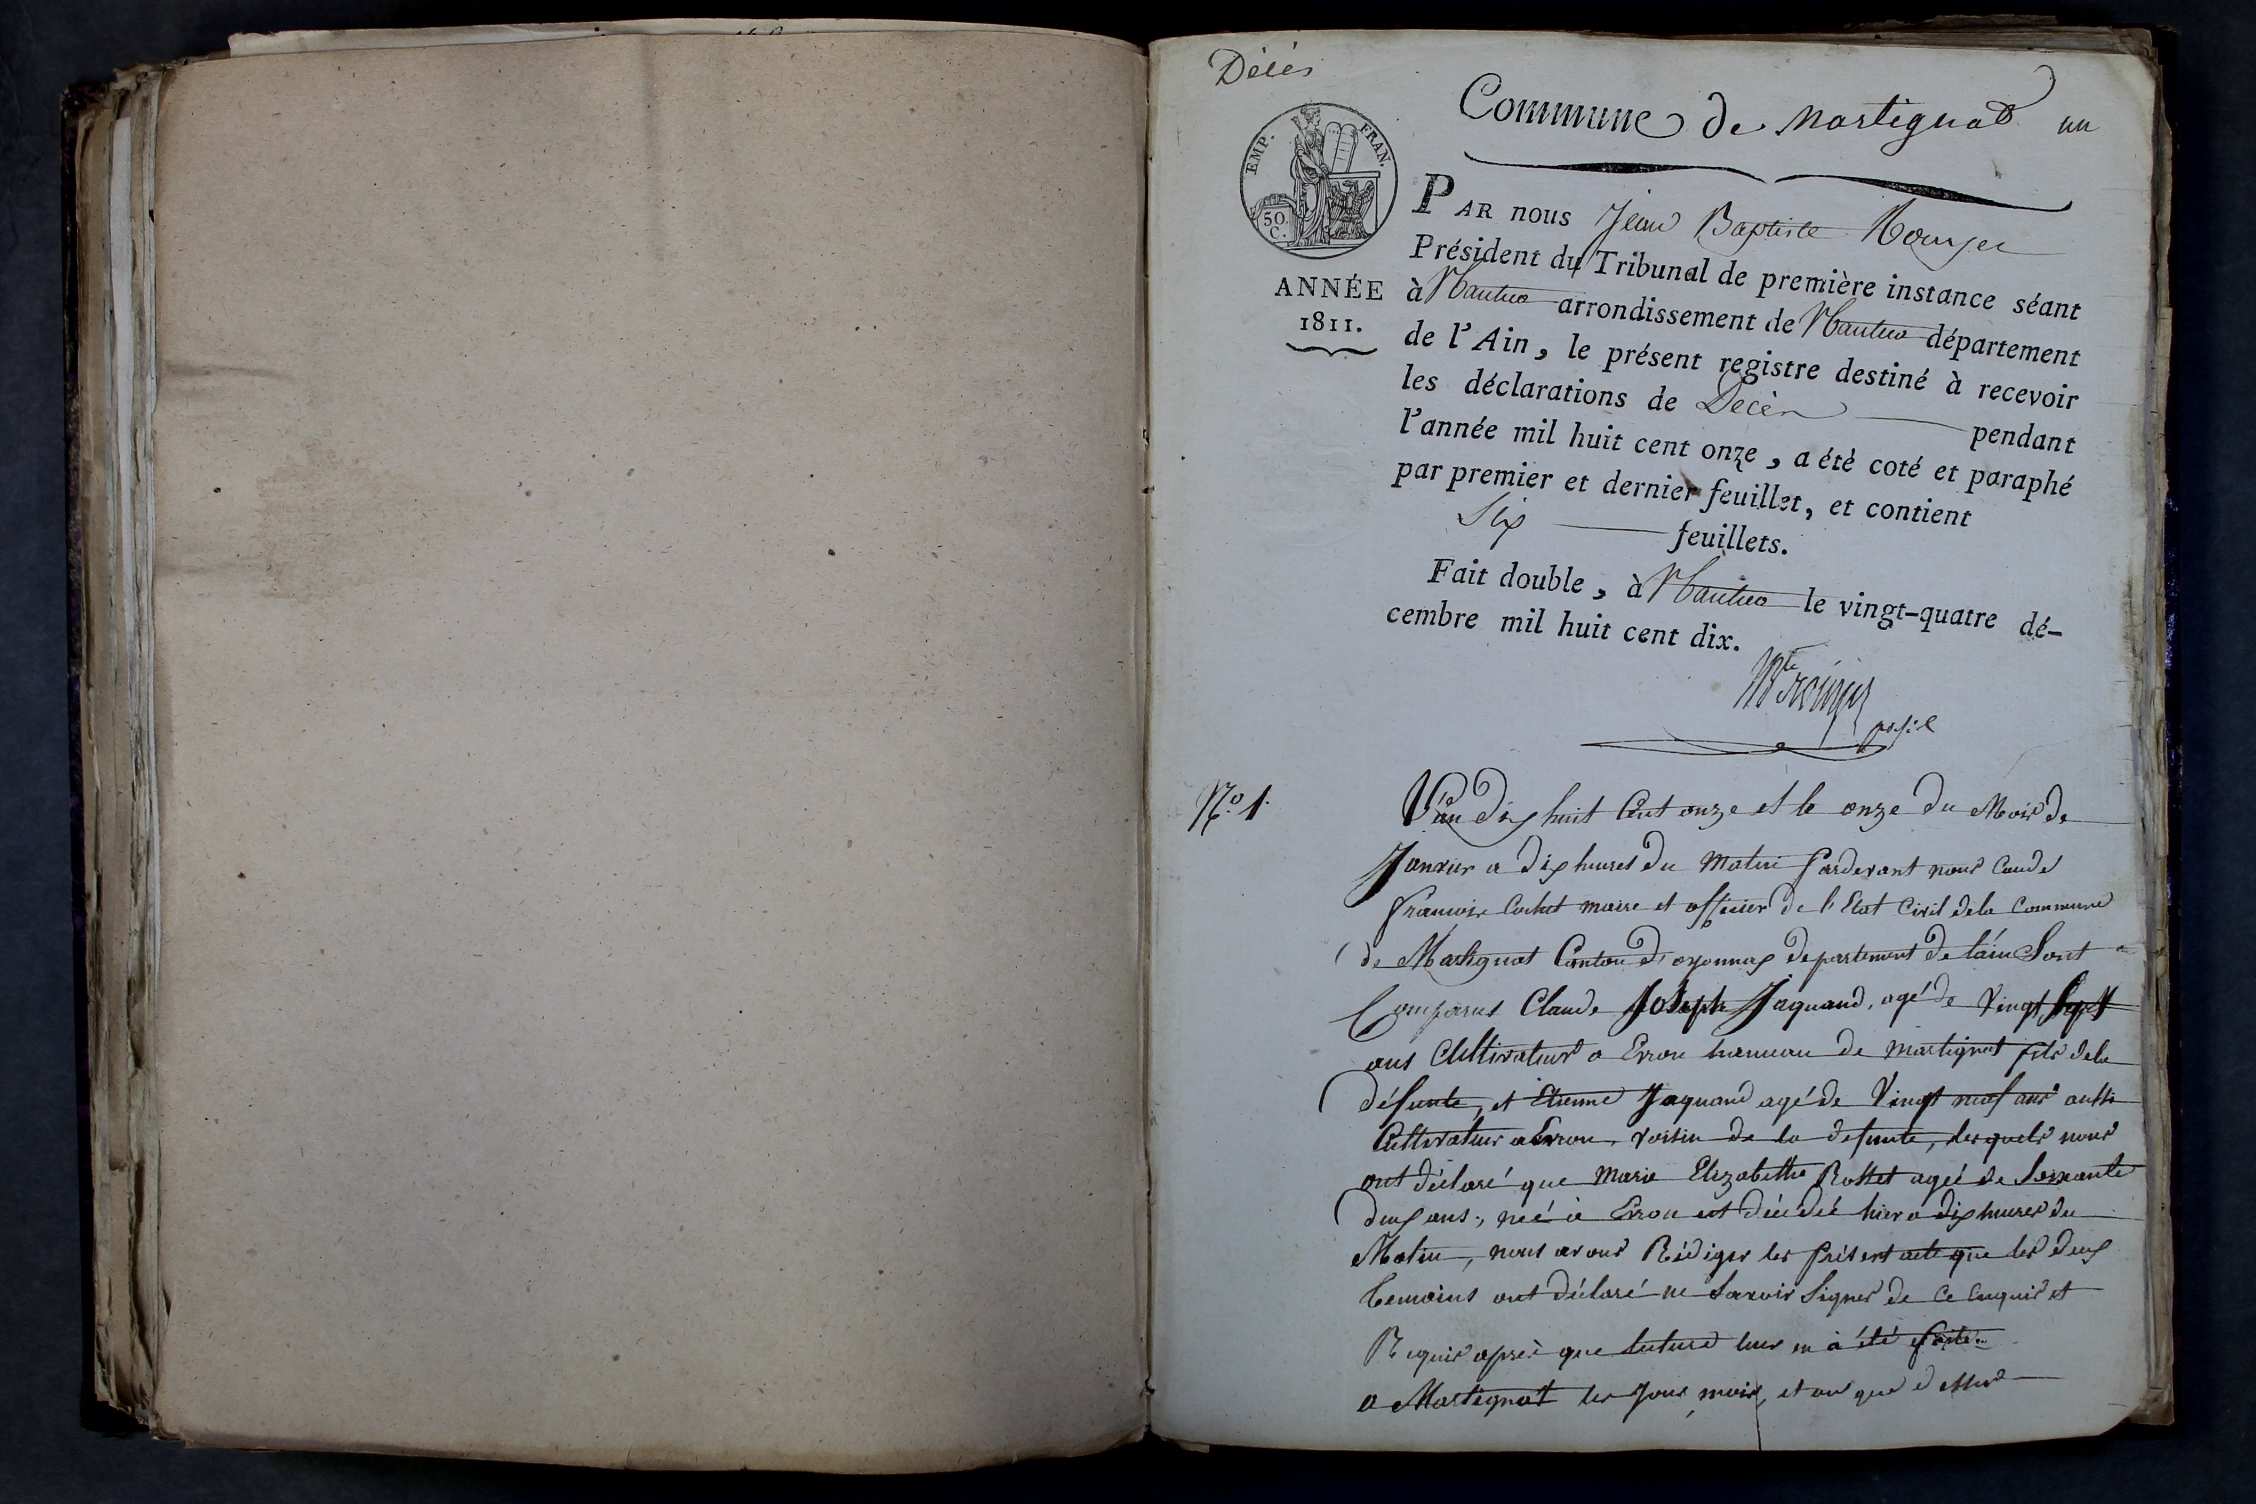 Décès
Commune de Martignat un
EMP. FRAN.
50.
C.
ANNÉE
1811.
PAR nous Jean Baptiste
Président du Tribunal de première instance séant
à Nantua arrondissement de Nantua département
de l'Ain, le présent registre destiné à recevoir
les déclarations de Décès pendant
l'année mil huit cent onze, a été coté et paraphé
par premier et dernier feuillet, et contient
Six feuillets.
Fait double, à Nantua le vingt-quatre dé-
cembre mil huit cent dix.
No. 1.
L'an dix huit Cent onze et le onze du Mois de
Janvier a dix heures du Matin pardevant nous Caude
francois Cochet maire et officier de l'Etat Civil dela Commune
de Martignat Canton d'oyonnax departement de l'ain Sont
Comparus Claude Joseph Jaquand, agé de Vingt Sept
ans Cultivateur a Erron hameau de Martignat fils dela
défunte, et Etienne Jaquand agé de Vingt neuf ans aussi
Cultivateur a Erron, voisin de la defunte, lesquels nous
ont déclaré que Marie Elizabethe Rosset agée de Soixante
deux ans, née à Erron est décédé hier a dix heures du
Matin, nous avons Rédiger les présent acte que les deux
temoins ont déclaré ne Savoir Signer de ce enquis et
Requis après que lecture leur en à été faite
a Martignat les Jour, mois, et an que dessus